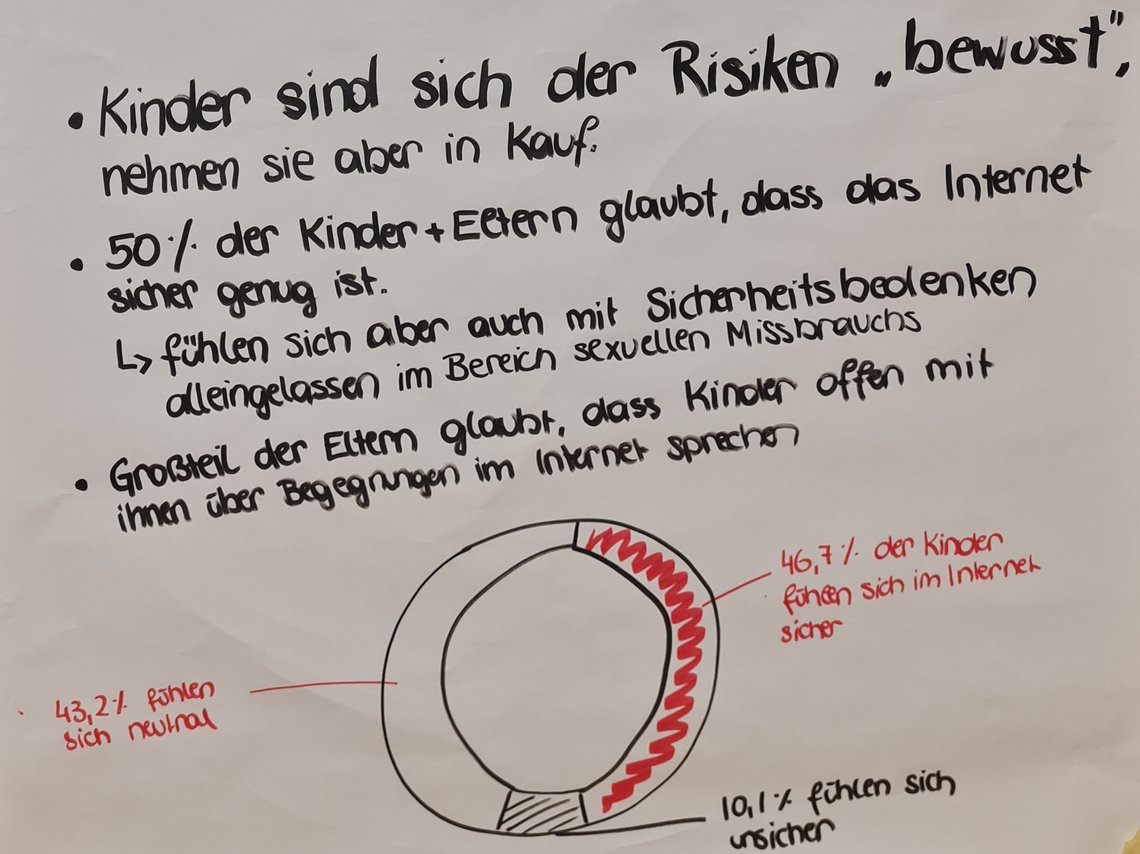 • Kinder sind sich der Risiken „bewusst",
nehmen sie aber in Kauf.
• 50% der Kinder + Eltern glaubt, dass das Internet
sicher genug ist.
↳ fühlen sich aber auch mit Sicherheitsbedenken
alleingelassen im Bereich sexuellen Missbrauchs
• Großteil der Eltern glaubt, dass Kinder offen mit
ihnen über Begegnungen im Internet sprechen
46,7% der Kinder
fühlen sich im Internet
sicher
43,2% fühlen
sich neutral
10,1% fühlen sich
unsicher